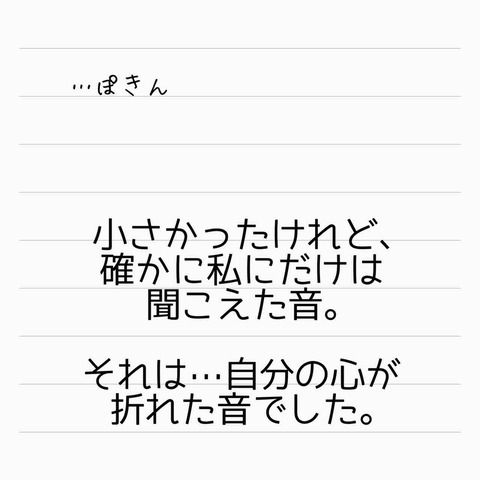 …ぽきん
小さかったけれど、
確かに私にだけは
聞こえた音。
それは…自分の心が
折れた音でした。